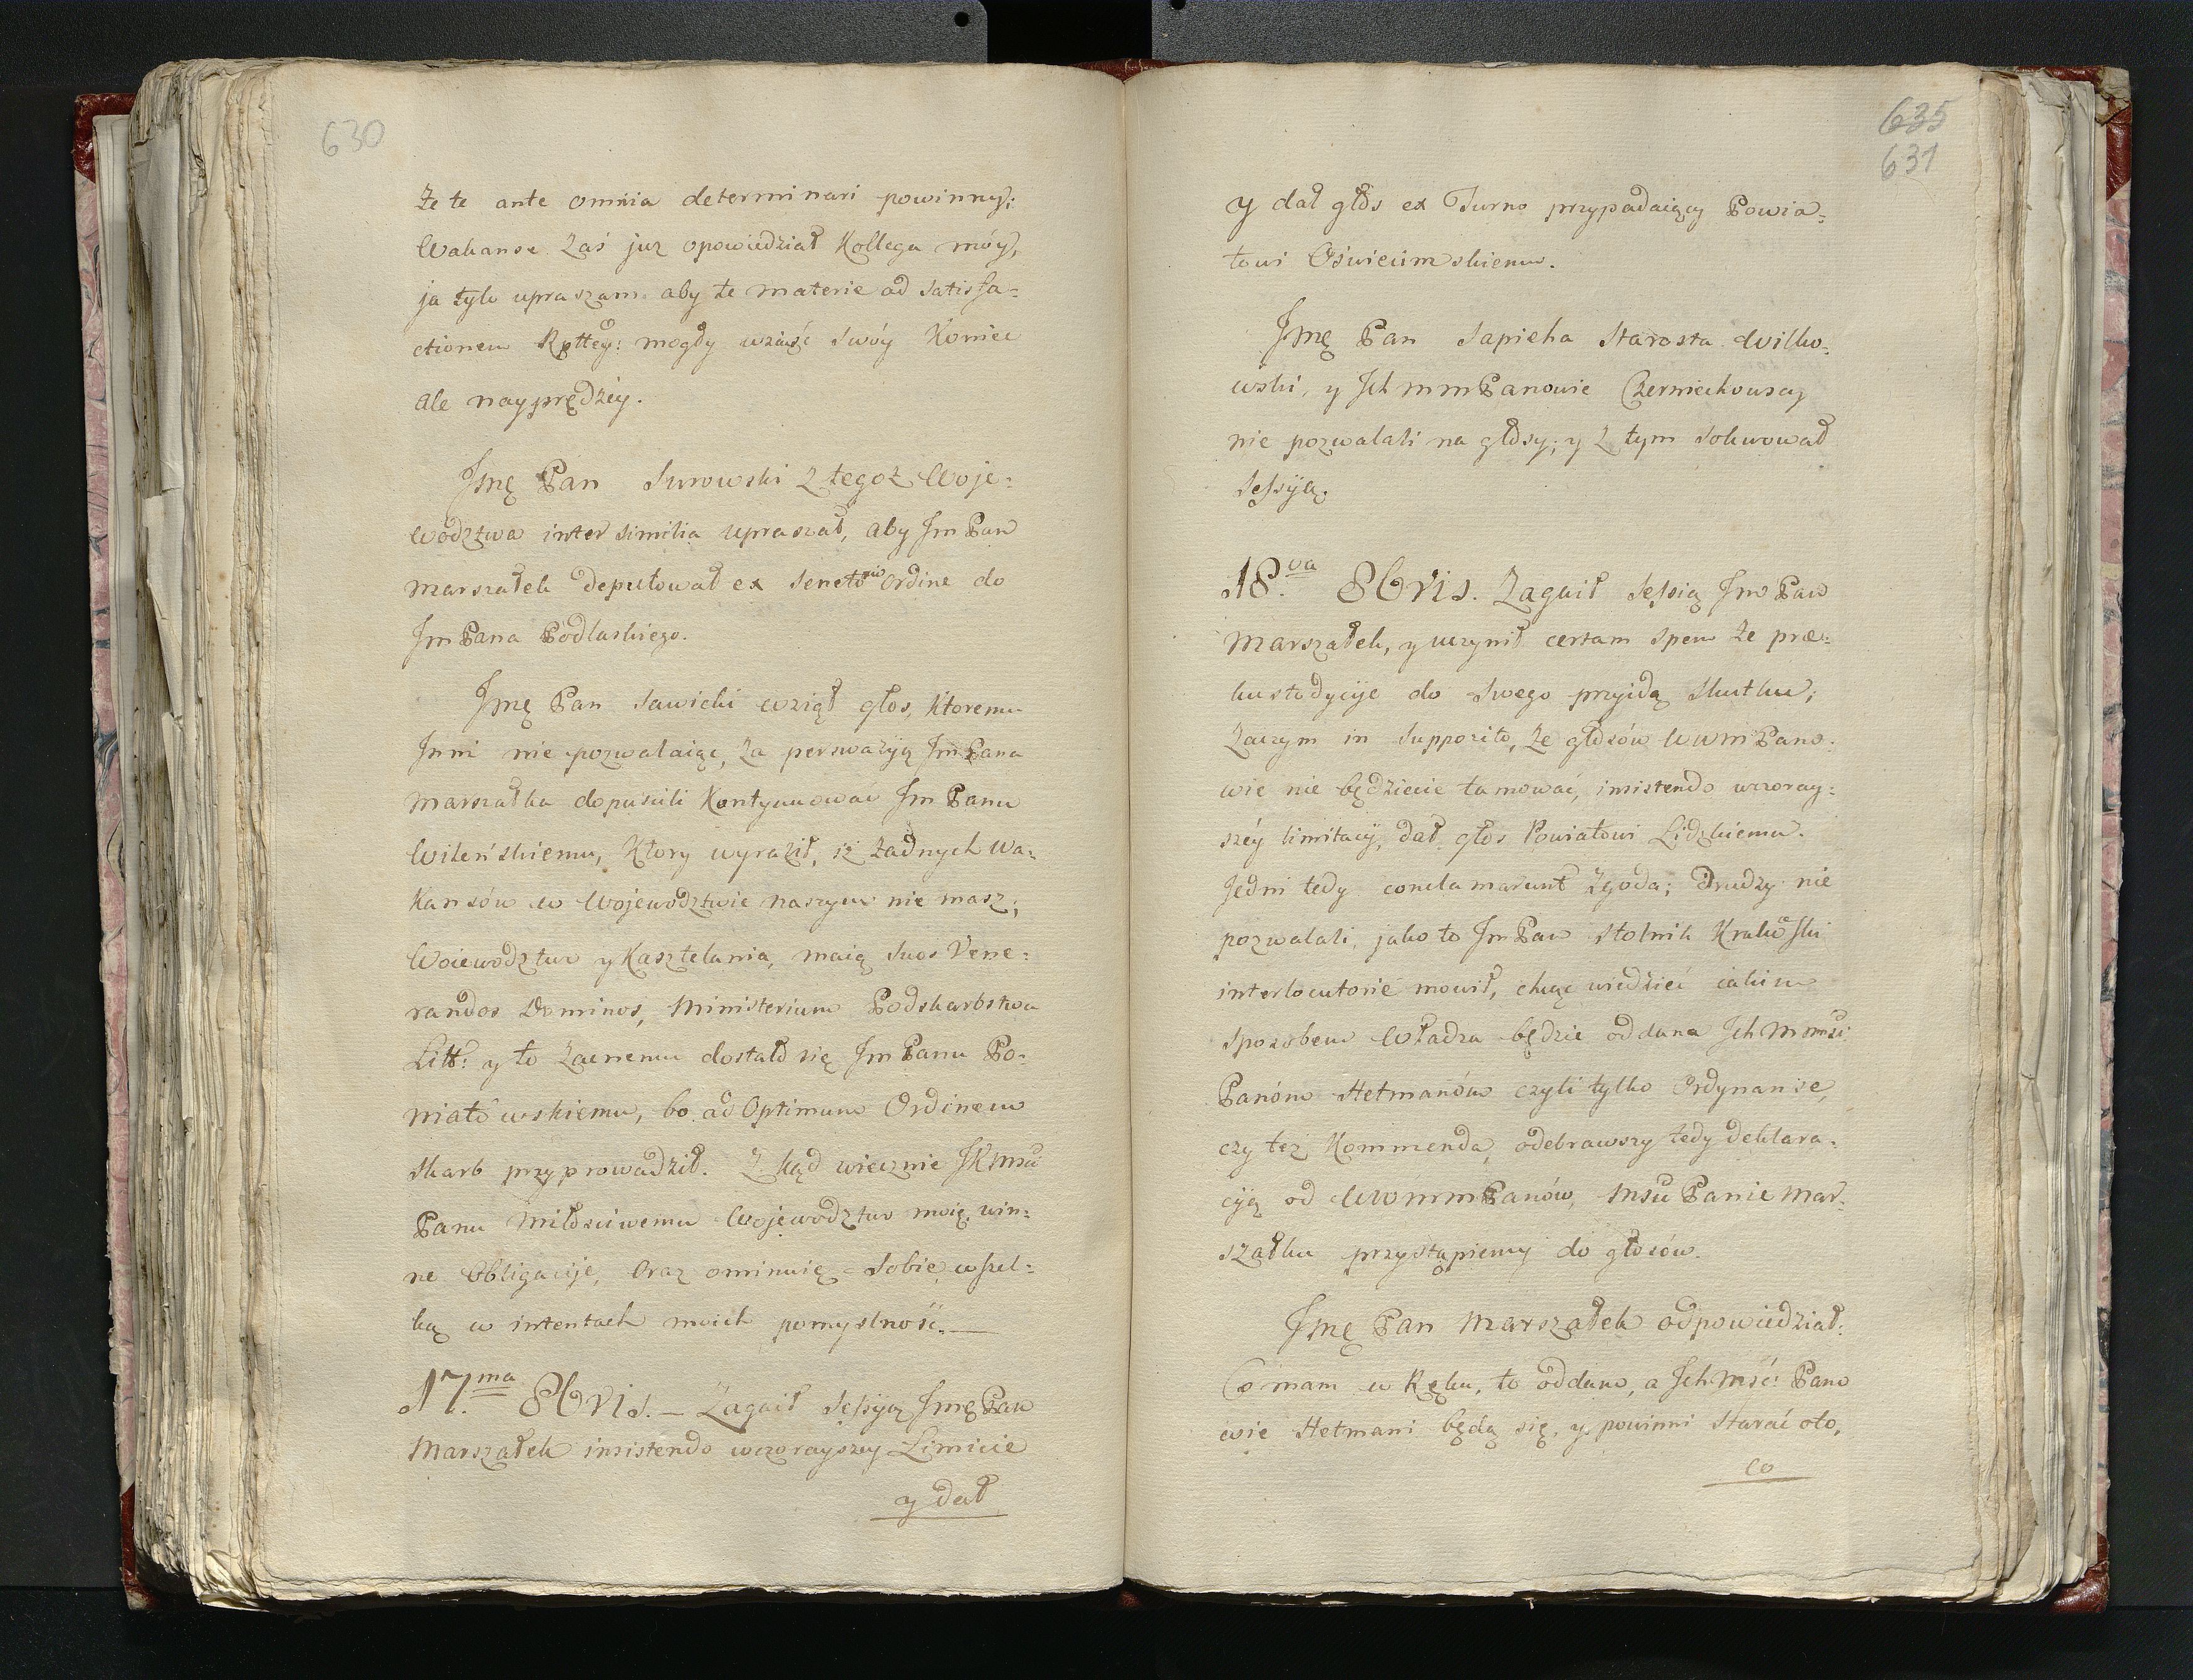 630
że te ante omnia determinari powinny;
Wakanse zaś juz opowiedział Kollega móy,
ja tylo upraszam aby te materie ad satisfa=
ctionem Rpttey: mogły wziąść swóy Koniec
ale nayprędzey.
Jmę Pan Surowski z tegoż Woje=
wodztwa inter similia upraszał, aby Jm Pan
Marszałek deputował ex Senato​rio Ordine do
Jm Pana Podlaskiego.
Jmę Pan Sawicki wziął głos, Ktoremu
Inni nie pozwalaiąc, za perswazyją Jm Pana
Marszałka dopuścili Kontynuować Jm Panu
Wileńskiemu, Ktory wyraził, iż żadnych Wa=
kansów w Wojewodztwie naszym nie masz;
Woiewodztwo y Kasztelania, maią suos Vene=
randos Dominos, Ministerium Podskarbstwa
Litt: y to zacnemu dostało się Jm Panu Po=
niatowskiemu, bo ad Optimum Ordinem
skarb przyprowadził. Z kąd wiecznie JKMsći
Panu Miłosciwemu Wojewodztwo moię win=
ne Obligacije, Oraz ominuię sobie wszel=
ką w intentach moich pomyslność.—
17.ma 8bris. — Zagaił Sessyą Jmę Pan
Marszałek insistendo wczorayszey Limicie
y dał
635
631
y dał głos ex Turno przypadaiący Powia=
towi Oświecimskiemu.
Jmę Pan Sapieha Starosta Wilko=
wski, y Ich mm Panowie Czerniechowscy
nie pozwalali na głosy; y z tym solwował
Sessyią.
18.va 8bris. Zagaił Sessią Jm Pan
Marszałek, y uczynił certam spem że præ=
kustodycije do swego przyidą skutku;
zaczym in supposito, że głosów WWm Pano=
wie nie będziecie tamować, insistendo wczoray=
széy limitacij, dał głos Powiatowi Lidzkiemu.
Jedni tedy conclamarunt zgoda; Drudzy nie
pozwalali, jako to Jm Pan Stolnik Krakoski
interlocutorie mowił, chcąc wiedzieć iakim
sposobem Władza będzie oddana Ich Mmśći
Panóm Hetmanóm czyli tylko Ordynanse,
czy też Kommenda, odebrawszy tedy deklara=
cyą od WWmmPanów, Msći Panie Mar=
szałku przystąpiemy do głosów.
Jmę Pan Marszałek odpowiedział:
Co mam w Ręku, to oddano, a Ich Mść: Pano
wie Hetmani będą się, y powinni starać oto,
co